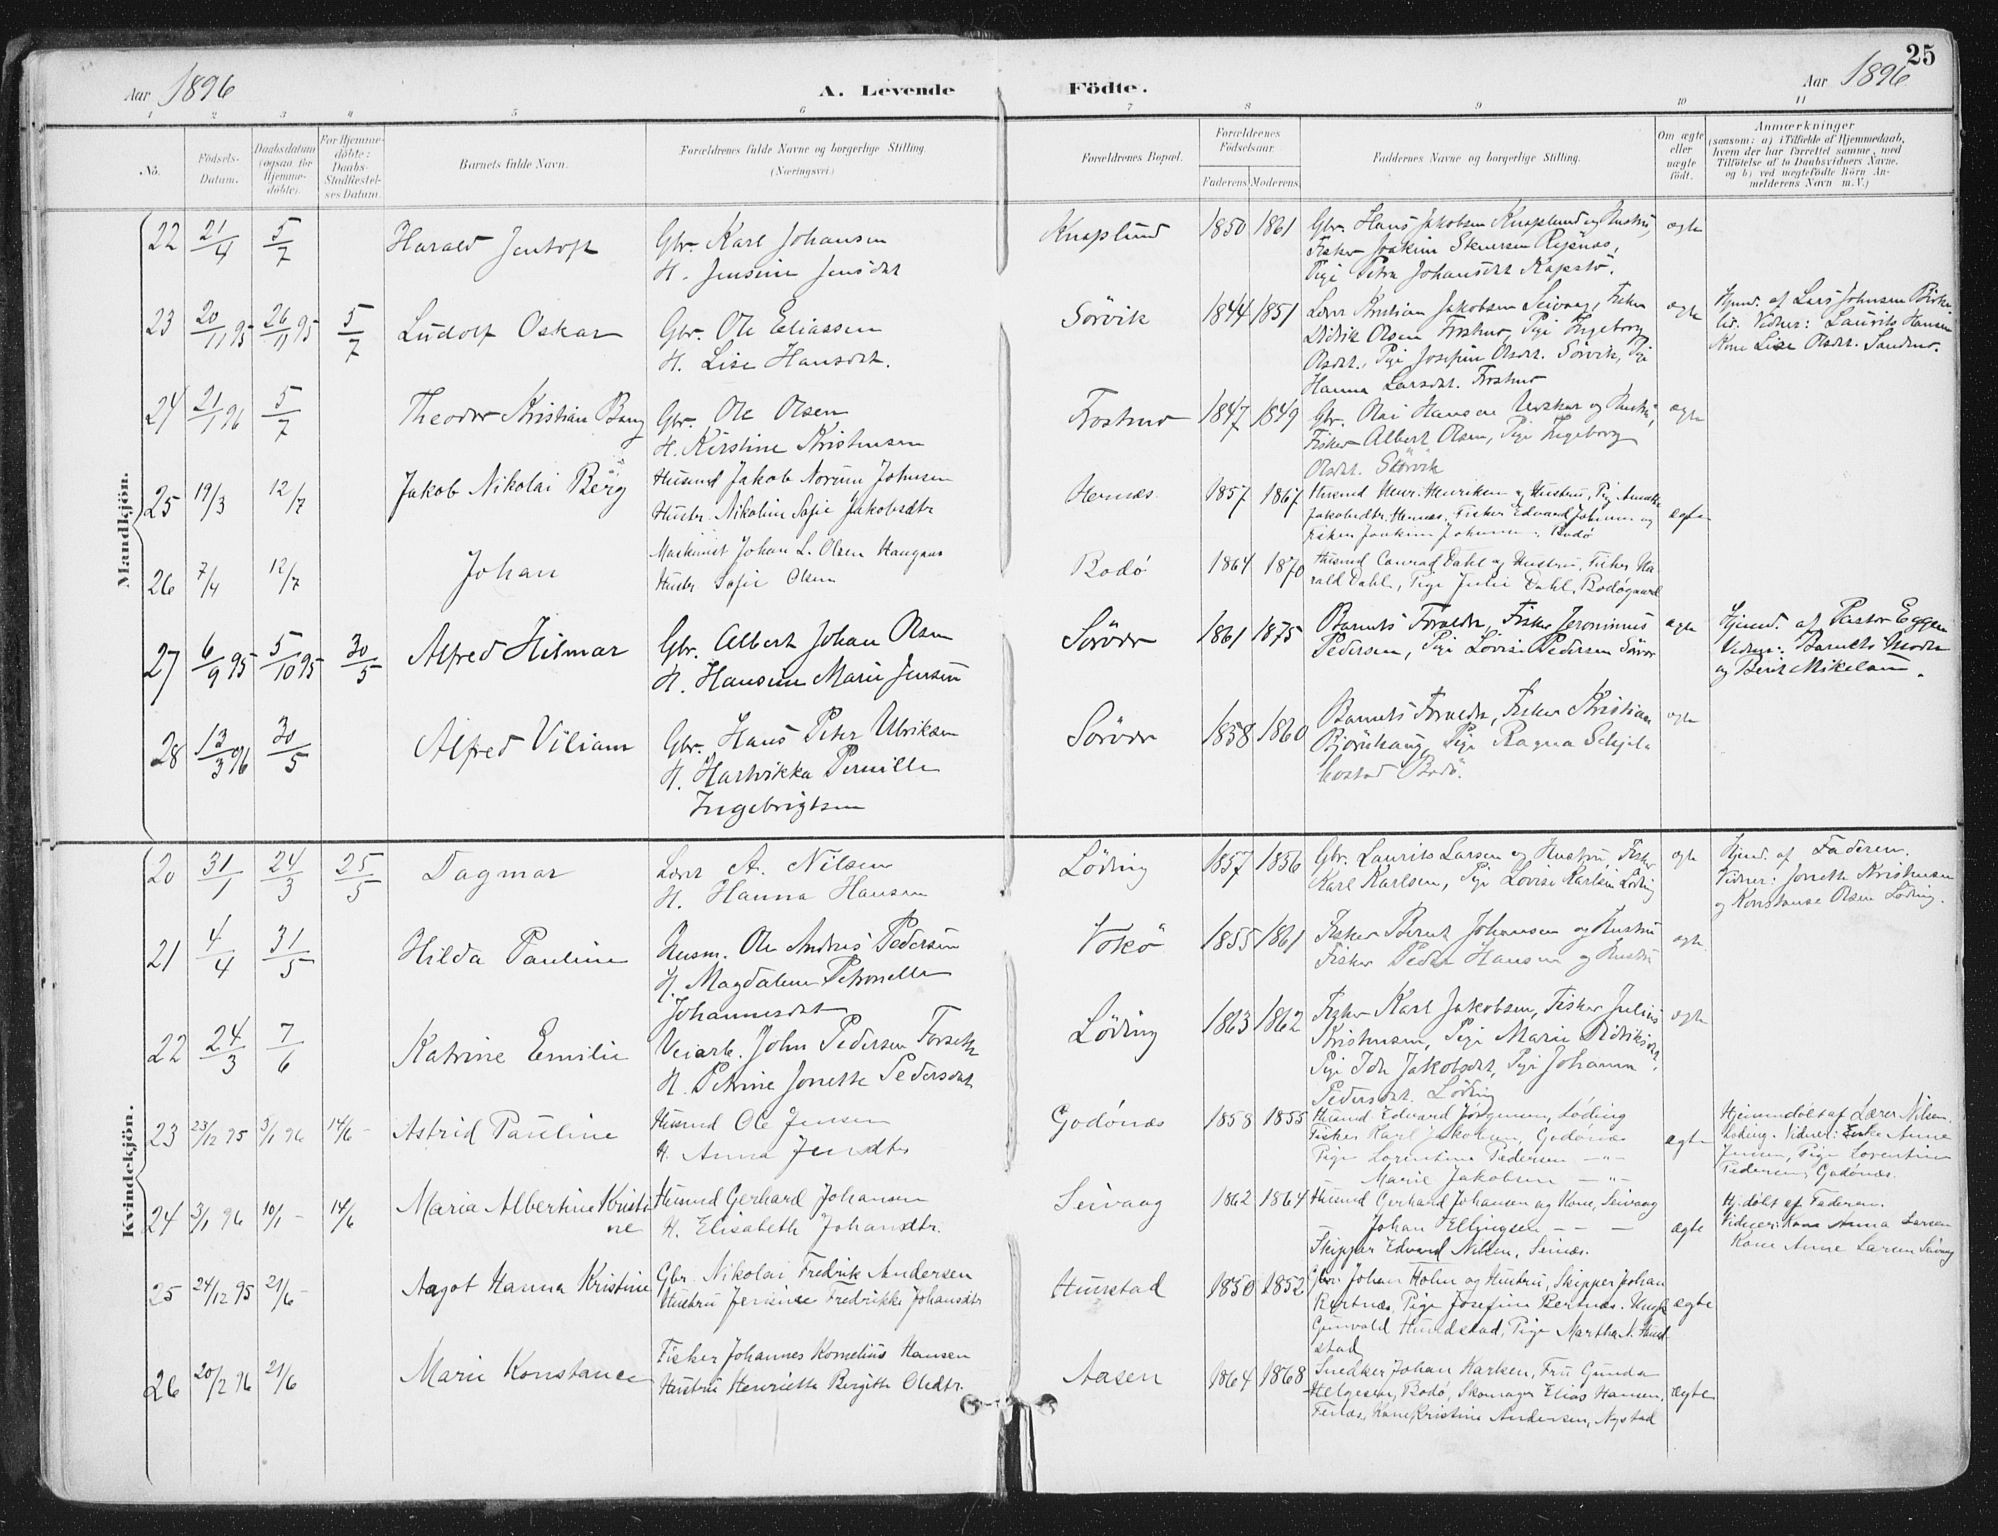 Aar 1896
A. Levende Födte.
Aar 1896
25
1 2 3 4 5 6 7 8 9 10 11
No.
Födsels-Datum.
Daabsdatum (ogsaa for Hjemme-döbte).
For Hjemme-döbte: Daabs-Stadfæstel-ses Datum.
Barnets fulde Navn.
Forældrenes fulde Navne og borgerlige Stilling.
(Næringsvei)
Forældrenes Bopæl.
Forældrenes Födselsaar.
Faderens. Moderens.
Faddernes Navne og borgerlige Stilling.
Om ægte eller uægte födt.
Anmærkninger
(saasom: a) i Tilfælde af Hjemmedaab, hvem der har forrettet samme, med Tilföielse af to Daabsvidners Navne. og b) ved uægtefödte Börn An-melderens Navn m.V.)
Mandkjön.
22 21/4 5/7 Harald Jentoft Gbr. Karl Johansen Knaplund 1850 1861 Gbr. Hans Jakobsen Knaplund og Hustru, ægte
H. Jensine Jensdat Fisker Joakim Stenersen
Pige Petra Johansdat
23 20/11 95 26/11 95 5/7 Ludolf Oskar Gbr. Ole Eliassen Sörvik 1844 1851 Lærer Kristian Jakobsen Seivaag, Fisker ægte Hjemd. af Lars Johnsen
H. Lise Hansdat. Didrik Olsen Frostmo, Pige Ingeborg Vidner: Laurits Hansen
Olsdat., Pige Josefin Olsdat. Sörvik, Pige Kone Lise Olsdat.
Hanna Larsdat. Frostmo
24 21/1 96 5/7 Theodor Kristian Bang Gbr. Ole Olsen Frostmo 1847 1849 Gbr. Olai Hansen og Hustru, ægte
H. Kirstine Kristensen Fisker Albert Olsen, Pige Ingeborg
Olsdat. Sörvik
25 19/3 12/7 Jakob Nikolai Berg Husmd Jakob Norum Johnsen Hernæs 1857 1867 Husmd Henr. Henriksen og Hustru, Pig ægte
Hustr. Nikoline Sofie Jakobsdtr Jakobsdtr. Hernæs, Fisker Edvard Johnsen og
Fisker Joakim Johnsen, Bodö
26 7/4 12/7 Johan Maskinist Johan L. Olsen Haugaas Bodö 1864 1870 Husmd Conrad Dahl og Hustru, Fisker Ha-
Hustr Sofie Olsen rald Dahl, Pige Julie Dahl, Bodögaard
27 6/9 95 5/10 95 30/5 Alfred Hilmar Gbr. Albert Johan Olsen Sörvær 1861 1875 Barnets Forældre, Fisker Jeronimus ægte Hjemd. af Pastor Eggen
H. Hansine Marie Jensen Pedersen, Pige Lovise Pedersen Sörvær Vidner: Barnets Moder
og Berit Mikelsen.
28 13/3 96 30/5 Alfred Viliam Gbr. Hans Peter Ulriksen Sörvær 1858 1860 Barnets Forældre, Fisker Kristian ægte
H. Hartvikka Pernille Björnhaug, Pige Ragna Schjel-
Ingebrigtsen Bodö.
Kvindekjön.
20 31/1 24/3 25/5 Dagmar Lærer A. Nilsen Löding 1857 1856 Gbr. Laurits Larsen og Hustru, Fisker ægte Hjemd. af Faderen.
H. Hanna Hansen Karl Karlsen, Pige Lovise Karlsen Löding Vidner: Jonette Kristensen
og Konstanse Olsen Löding.
21 4/4 31/5 Hilda Pauline Husm. Ole Andreas Pedersen Vokö 1855 1861 Fisker Bernt Johansen og Hustru ægte
H. Magdalene Petronelle Fisker Peder Hansen og Hustru
Johannesdat
22 24/3 7/6 Katrine Emilie Veiarb. John Pedersen Forseth Löding 1863 1862 Fisker Karl Jakobsen, Fisker Julius ægte
H. Petrine Jonette Pedersdat Kristensen, Pige Marie Didriksdat,
Pige Ida Jakobsdat, Pige Johanna
Pedersdat. Löding
23 23/12 95 3/1 96 14/6 - Astrid Pauline Husmd Ole Jensen Godönæs 1858 1855 Husmd Edvard Jörgensen, Löding ægte Hjemmdöbt af Lærer Nilsen,
H. Anna Jensdtr Fisker Karl Jakobsen, Godönæs Löding. Vidner: Enke Anne
Pige Lorentine Pedersen - " - Jensen, Pige Lorentine
Marie Jakobsen - " - Pedersen, Godönæs.
24 3/1 96 10/1 - 14/6 Maria Albertine Kristi- Husmd Gerhard Johansen Seivaag 1862 1864 Husmd Gerhard Johansen og Kone, Seivaag ægte Hj.döbt af Faderen.
ne H. Elisabeth Johansdtr. Johan Ellingsen - - - Vidner: Kone Anna Larsen
Skipper Edvard Nilsen, Seinæs. Kone Anne Larsen Seivaag
25 24/12 95 21/6 - Aagot Hanna Kristine Gbr. Nikolai Fredrik Andersen Hunstad 1850 1852 Gbr. Johan Holm og Hustru, Skipper Johan ægte
Hustru Jensine Fredrikke Johansdtr Bertnæs, Pige Josefine Bertnæs. Ungk
Gunvald Hundstad, Pige Martha N. Hund
stad
26 20/2 96 21/6 Marie Konstance Fisker Johannes Kornelius Hansen Aasen 1864 1868 Snedker Johan Karlsen, Fru Gunda ægte
Hustru Henriette Bergitte Olsdtr. Helgesen, Bodö, Skomager Elias Hansen,
Kone Kristine Andersen, Nystad